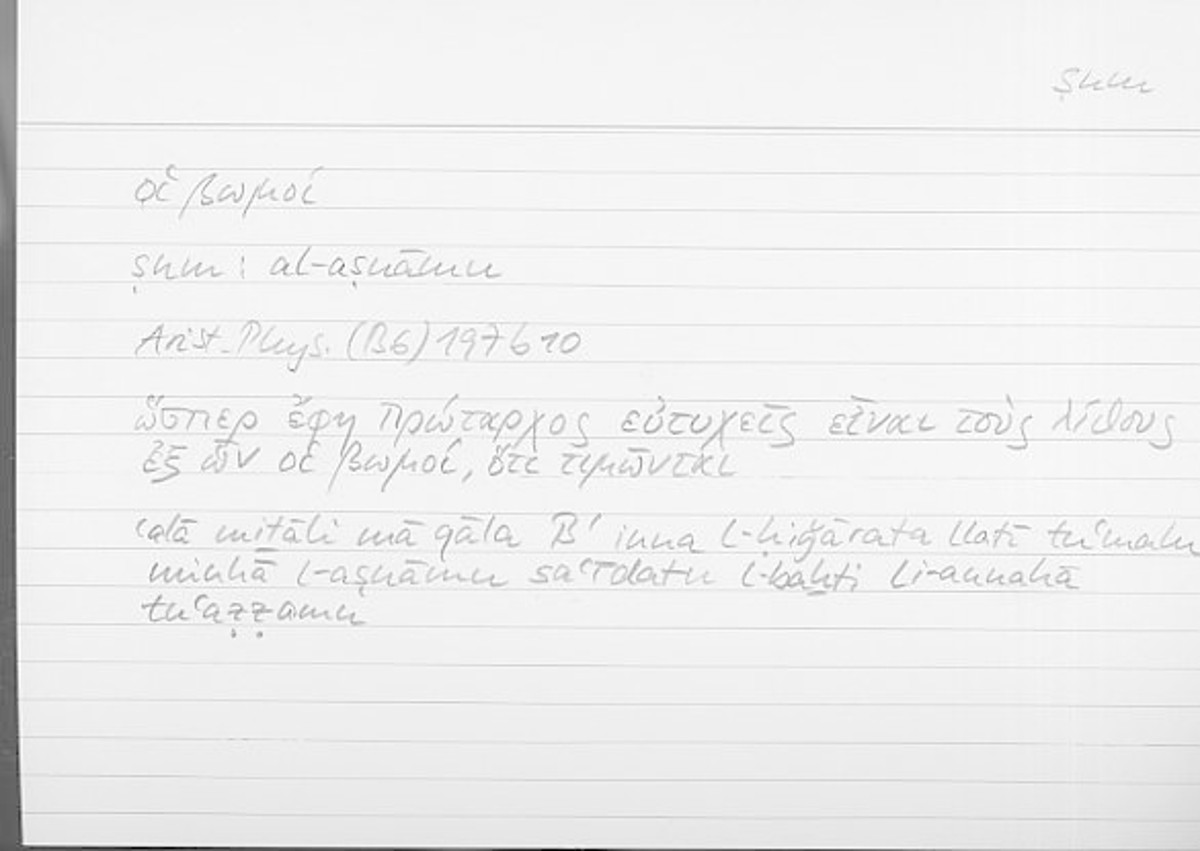 ṣnm
οἱ βωμοί
ṣnm: al-aṣnāmu
Arist. Phys. (B6) 197b10
ὥσπερ ἔφη Πρώταρχος εὐτυχεῖς εἶναι τοὺς λίθους
ἐξ ὧν οἱ βωμοί, ὅτι τιμῶνται
ʿalā mitāli mā qāla B' inna l-ḥiǧārata llatī tuʿmalu
minhā l-aṣnāmu saʿīdatu l-baḫti li-annahā
tuʿaẓẓamu